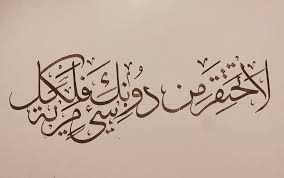 لا تحتقر من دُونك فلكل شيء مزية